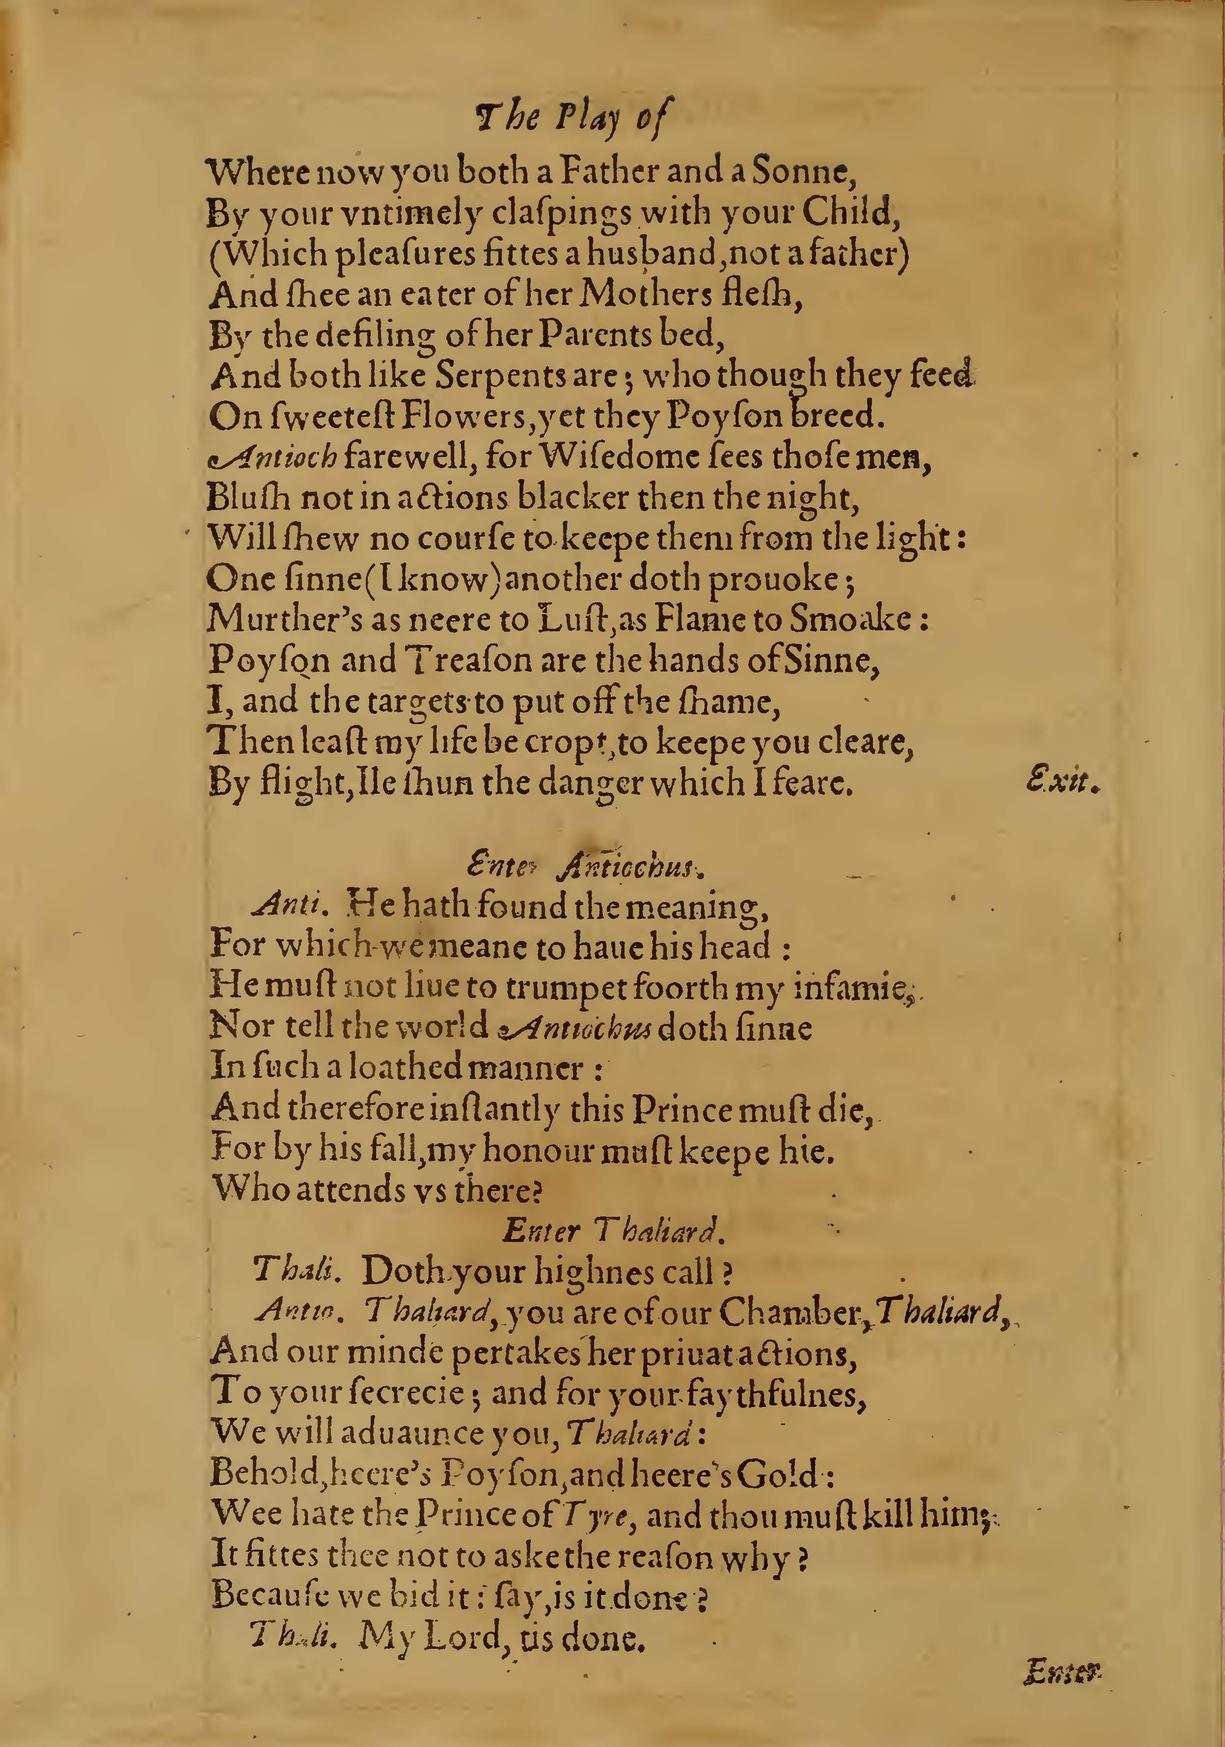 The Play of
Where now you both a Father and a Sonne,
By your vntimely claſpings with your Child,
(Which pleaſures fittes a husband,not a father)
And ſhee an eater of her Mothers fleſh,
By the defiling of her Parents bed,
And both like Serpents are; who though they feed
On ſweeteſt Flowers,yet they Poyſon breed.
Antioch farewell, for Wiſedome ſees thoſe men,
Bluſh not in actions blacker then the night,
Will ſhew no courſe to keepe them from the light:
One ſinne(I know)another doth prouoke;
Murther's as neere to Luſt,as Flame to Smoake:
Poyſon and Treaſon are the hands of Sinne,
I, and the targets to put off the ſhame,
Then leaſt my life be cropt,to keepe you cleare,
By flight,Ile ſhun the danger which I feare. Exit.
Enter Antiochus.
Anti. He hath found the meaning,
For which we meane to haue his head :
He muſt not liue to trumpet foorth my infamie,
Nor tell the world Antiochus doth ſinne
In ſuch a loathed manner :
And therefore inſtantly this Prince muſt die,
For by his fall,my honour muſt keepe hie.
Who attends vs there?
Enter Thaliard.
Thali. Doth your highnes call ?
Antio. Thaliard, you are of our Chamber,Thaliard,
And our minde pertakes her priuat actions,
To your ſecrecie; and for your faythfulnes,
We will aduaunce you, Thaliard:
Behold,heere's Poyſon,and heere's Gold:
Wee hate the Prince of Tyre, and thou muſt kill him;
It fittes thee not to aske the reaſon why ?
Becauſe we bid it: ſay,is it done ?
Thali. My Lord, tis done.
Enter